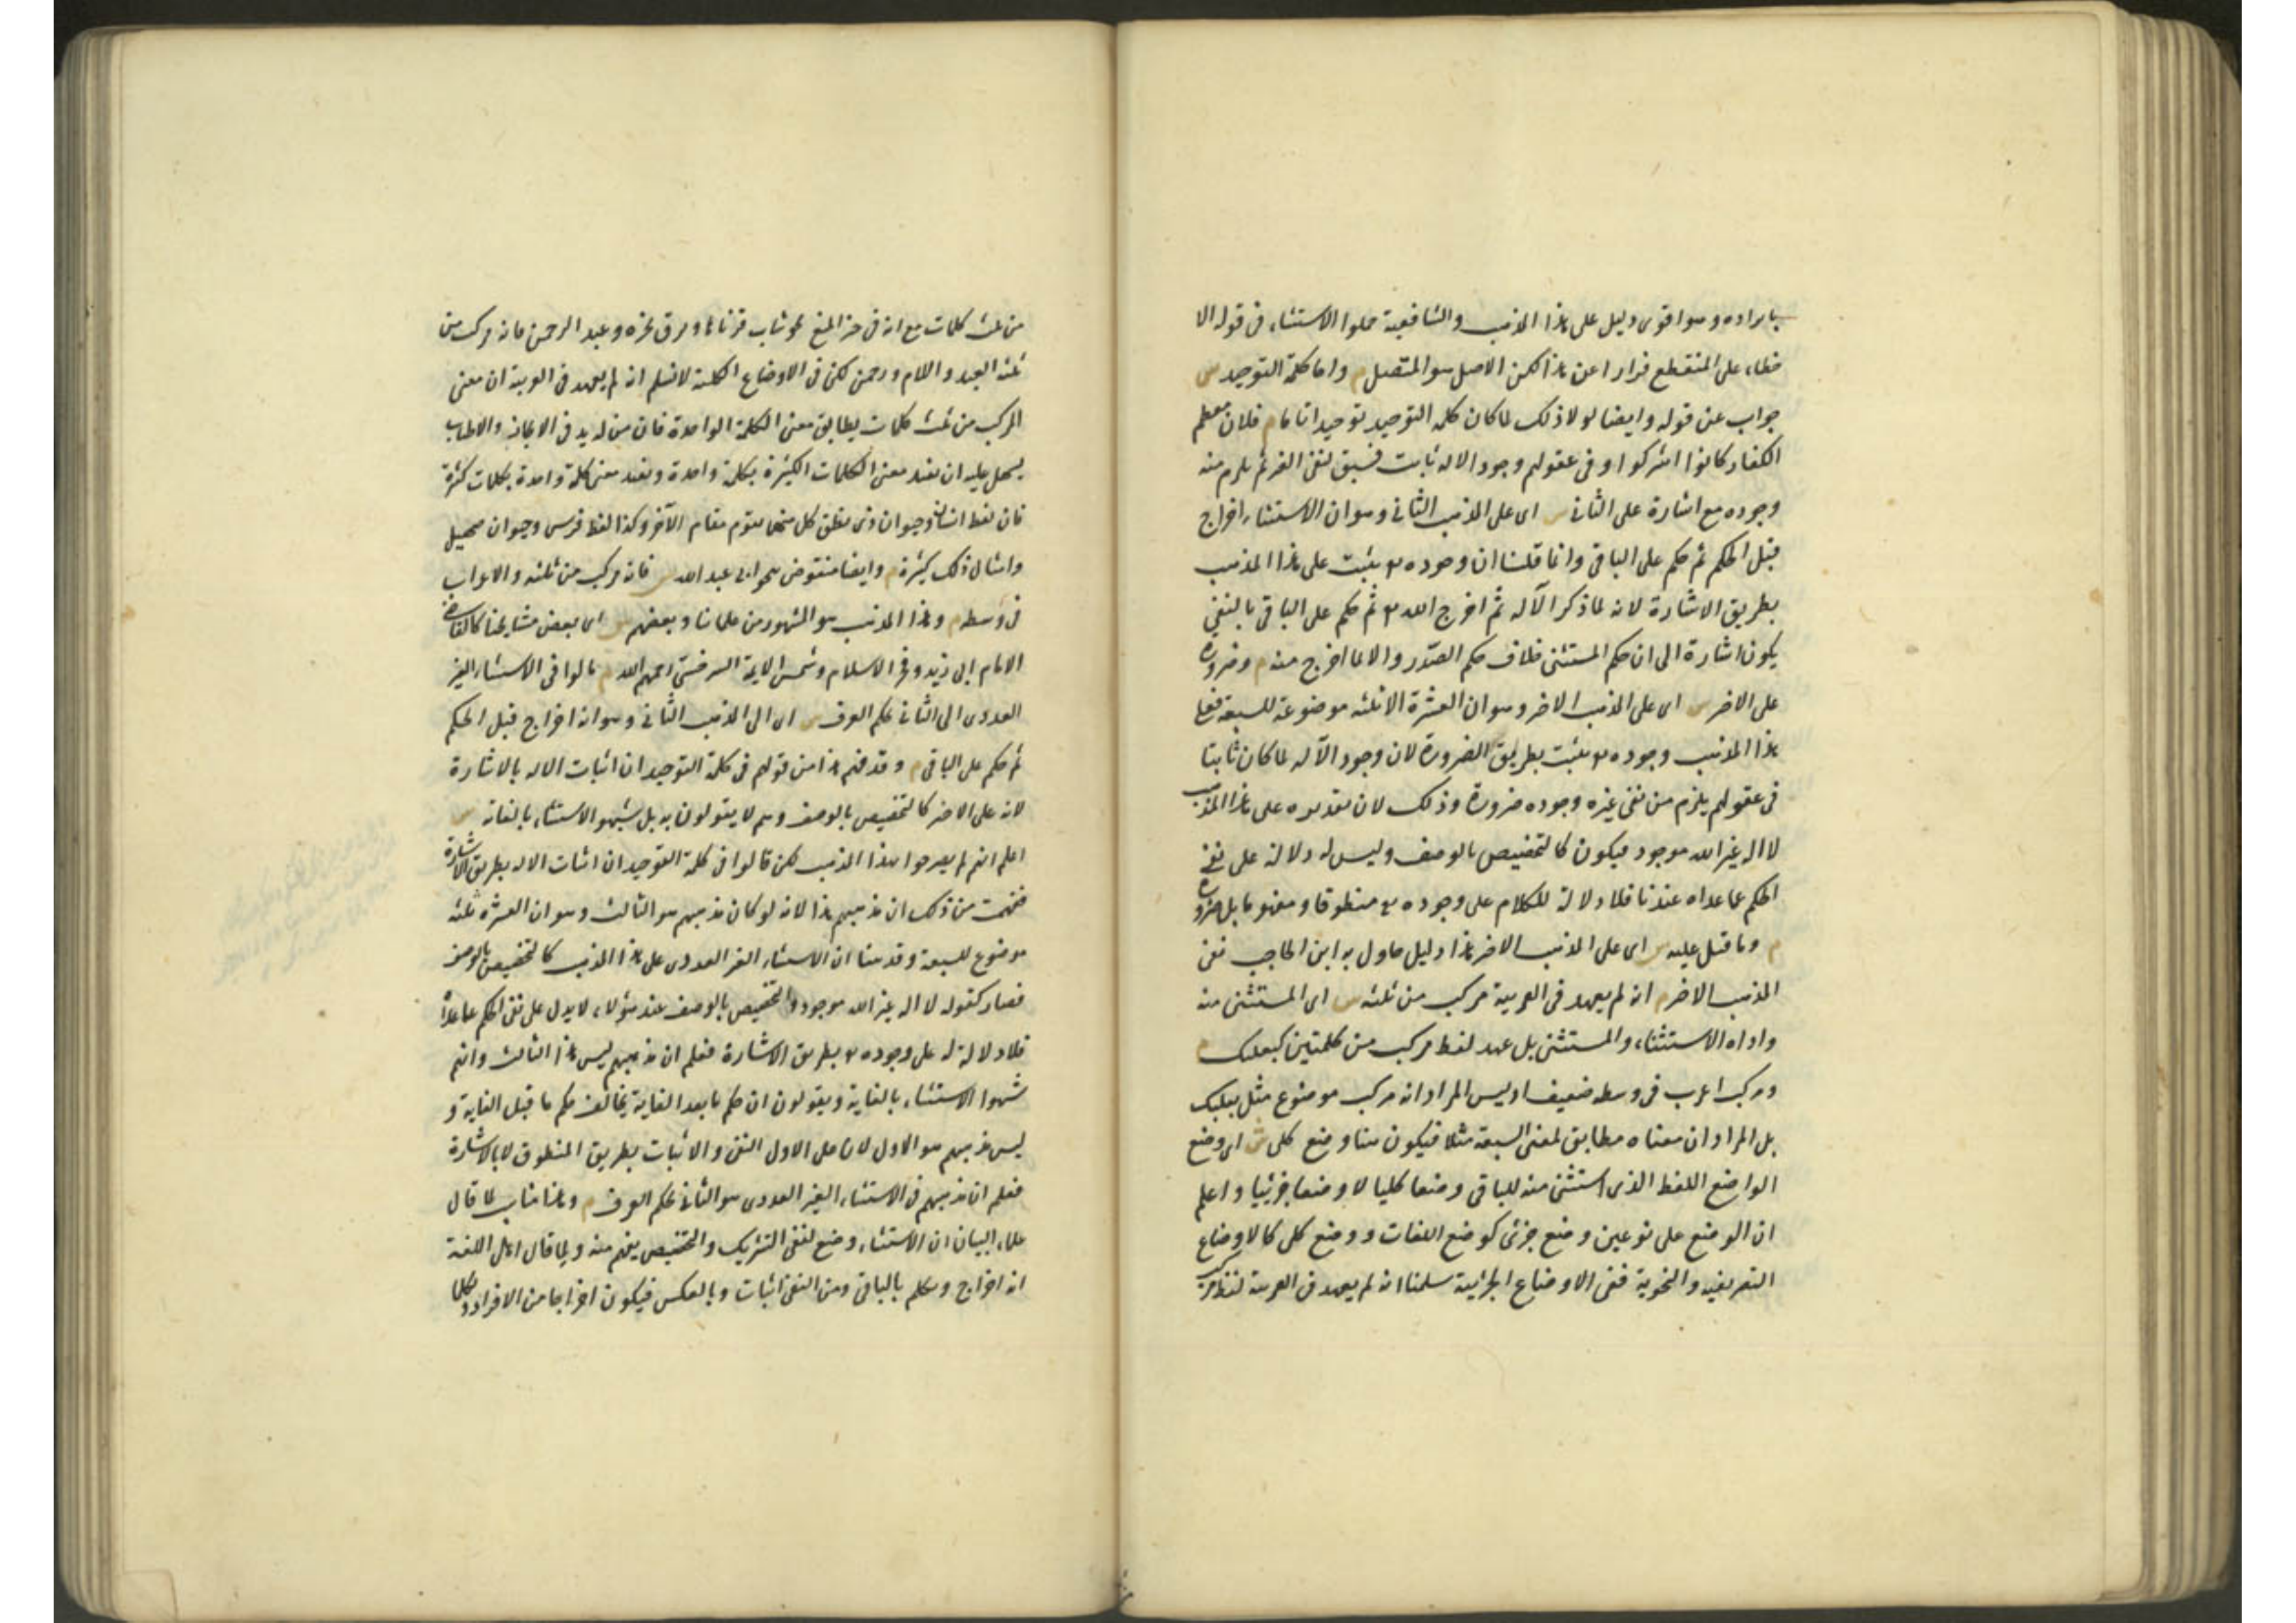 بايراده وهو اقوى دليل على هذا المذهب والشافعية حملوا الاستثناء في قوله الا
خطاء على المنقطع فرارا عن هذا لكن الاصل هو المتصل م واما كلمة التوحيد س
جواب عن قوله وايضا لولا ذلك لما كان كلمة التوحيد توحيدا تاما م فلان معظم
الكفار كانوا اشركوا وفي عقولهم وجود الاله ثابت فسيق لنفي الغير ثم يلزم منه
وجوده مع اشارة على الثاني س اى على المذهب الثاني وهو ان الاستثناء اخراج
قبل الحكم ثم حكم على الباقي وانما قلنا ان وجوده تع يثبت على هذا المذهب
بطريق الاشارة لانه لما ذكر الآله ثم اخرج الله تع ثم حكم على الباقي بالنفي
يكون اشارة الى ان حكم المستثنى خلاف حكم الصدر والا لما اخرج منه م وضرورة
على الاخير س اى على المذهب الاخير وهو ان العشرة الا ثلثه موضوعة للسبعة فعلى
هذا المذهب وجوده تع يثبت بطريق الضرورة لان وجود الآله لما كان ثابتا
في عقولهم يلزم من نفي غيره وجوده ضرورة وذلك لان تقديره على هذا المذهب
لا اله غير الله موجود فيكون كالتخصيص بالوصف وليس له دلالة على نفي
الحكم عما عداه عندنا فلا دلالة للكلام على وجوده تع منطوقا ومفهوما بل ضرورة
م وما قيل عليه س اى على المذهب الاخير هذا دليل حاول به ابن الحاجب نفي
المذهب الاخير م انه لم يعهد في العربية مركب من ثلثه س اى المستثنى منه
واداه الاستثناء والمستثنى بل عهد لفظ مركب من كلمتين كبعلبك م
ومركب اعرب في وسطه ضعيف اذ ليس المراد انه مركب موضوع مثل بعلبك
بل المراد ان معناه مطابق لمعنى السبعة مثلا فيكون هنا وضع كلى ش اى وضع
الواضع اللفظ الذى استثنى منه للباقي وضعا كليا لا وضعا جزئيا واعلم
ان الوضع على نوعين وضع جزئى كوضع اللغات ووضع كلى كالاوضاع
التصريفيه والنحوية ففى الاوضاع الجزئية سلمنا انه لم يعهد في العربية لفظ مركب
من ثلث كلمات مع انه في حيز المنع نحو شاب قرناها وبرق نحره وعبد الرحمن فانه مركب من
ثلثه العبد واللام ورحمن لكن في الاوضاع الكلية لا نسلم انه لم يعهد في العربية ان معنى
المركب من ثلث كلمات يطابق معنى الكلمة الواحدة فان من له يد في الايجاز والاطناب
يسهل عليه ان يفيد معنى الكلمات الكثيرة بكلمة واحدة ويفيد معنى كلمة واحدة بكلمات كثيرة
فان لفظ انسان وحيوان ذى نطق كل منهما يقوم مقام الآخر وكذا لفظ فرس وحيوان صهيل
وامثال ذلك كثيرة م وايضا منقوض بنحو ابى عبد الله س فانه مركب من ثلثه والاعراب
في وسطه م وهذا المذهب هو المشهور من علمائنا وبعضهم س اى بعض مشايخنا كالقاضى
الامام ابى زيد وفخر الاسلام وشمس الايمة السرخسى رحمهم الله م مالوا في الاستثناء الغير
العددى الى الثاني بحكم العرف س اى الى المذهب الثاني وهو انه اخراج قبل الحكم
ثم حكم على الباقي م وقد فهم هذا من قولهم في كلمة التوحيد ان اثبات الاله بالاشارة
لانه على الاخير كالتخصيص بالوصف وهم لا يقولون به بل شبهوا الاستثناء بالغاية س
اعلم انهم لم يصرحوا بهذا المذهب لكن قالوا في كلمة التوحيد ان اثبات الاله بطريق الاشارة
ففهمت من ذلك ان مذهبهم هذا لانه لو كان مذهبهم هو الثالث وهو ان العشره الا ثلثه
موضوع للسبعة وقد بينا ان الاستثناء الغير العددى على هذا المذهب كالتخصيص بالوصف
فصار كقوله لا اله غير الله موجود والتخصيص بالوصف عند هؤلاء لا يدل على نفي الحكم عما عداه
فلا دلالة له على وجوده تع بطريق الاشارة فعلم ان مذهبهم ليس هذا الثالث وانهم
شبهوا الاستثناء بالغاية ويقولون ان حكم ما بعد الغاية يخالف حكم ما قبل الغاية و
ليس مذهبهم هو الاول لان على الاول النفي والاثبات بطريق المنطوق لا بالاشارة
فعلم ان مذهبهم في الاستثناء الغير العددى هو الثاني بحكم العرف م وهذا مناسب لما قال
علماء البيان ان الاستثناء وضع لنفي التشريك والتخصيص يفهم منه ولما قال اهل اللغة
انه اخراج وتكلم بالباقي ومن النفي اثبات وبالعكس فيكون اخراجا من الافراد وتكلما